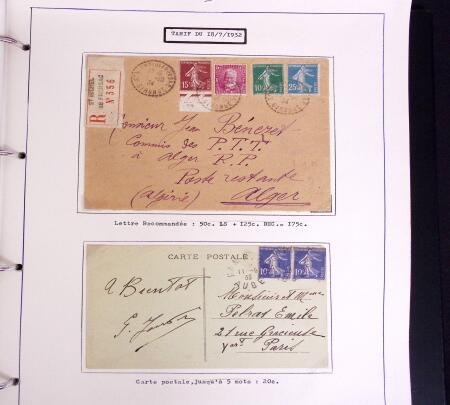 TARIF DU 18/7/1932
R
ST MICHEL
DE FRONSAC
N° 356
15c
10c
25c
Monsieur Jean Bénezet
Commis des P.T.T.
à Alger R.P.
Poste restante
(Algérie) Alger
Lettre Recommandée : 50c. LS + 125c. REC.= 175c.
CARTE POSTALE
10c
10c
A Bientôt
Monsieur et Mme
Pelras Emile
21 rue Gracieuse
Paris
Carte postale, jusqu'à 5 mots : 20c.